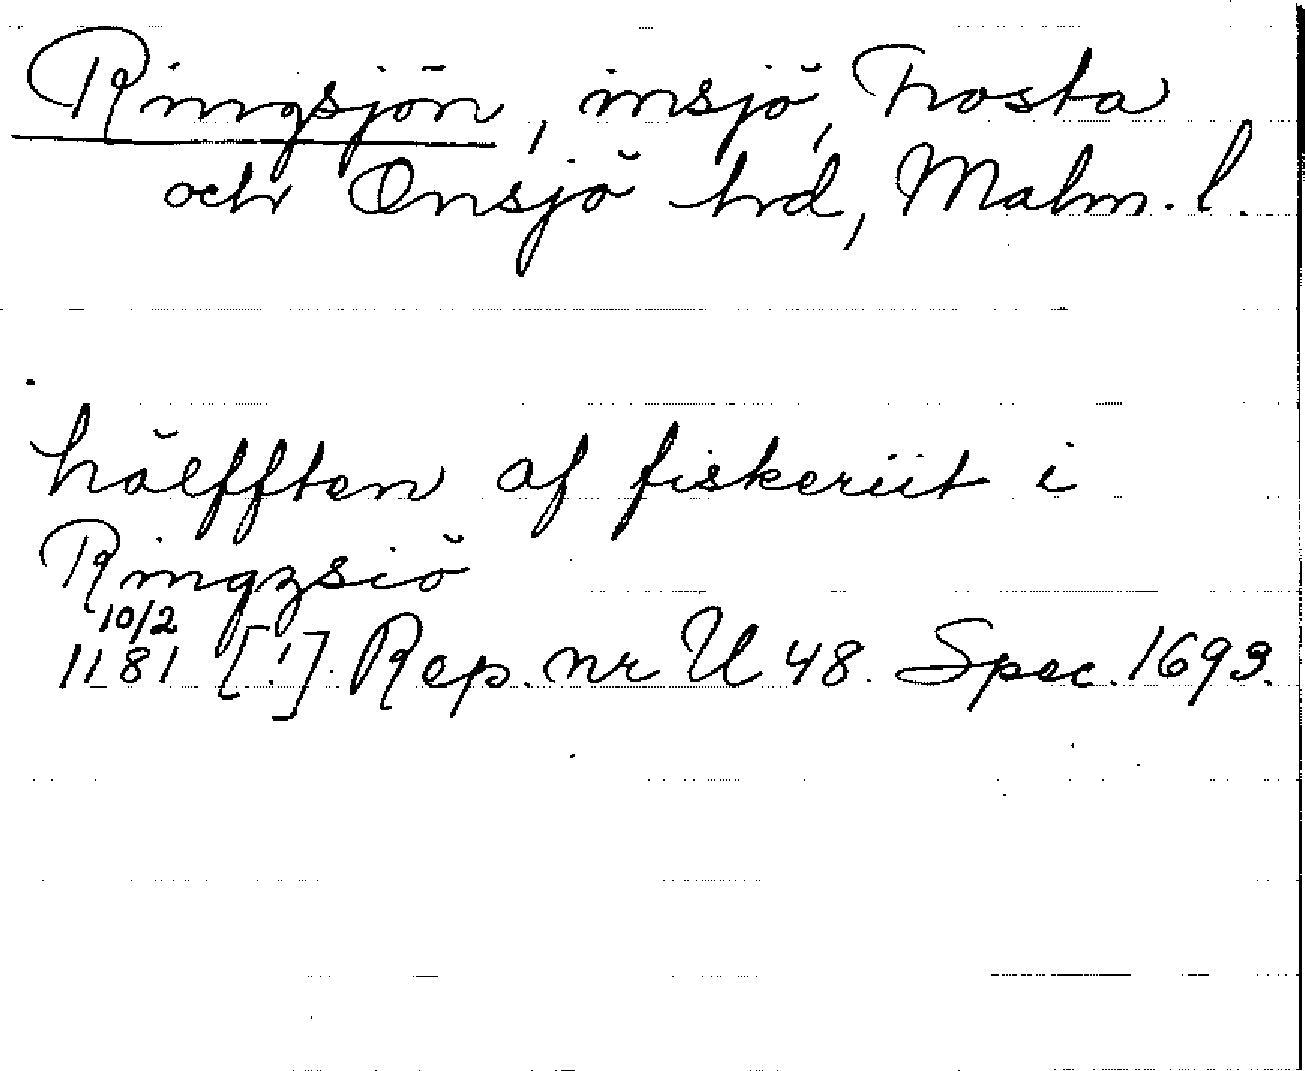 Ringsjön, insjö, Frosta
och Onsjö hrd, Malm. l.
hälfften af fiskeriit i
Ringzsiö
10/2
1181 [!]. Rep. nr U 48. Spec. 1693.